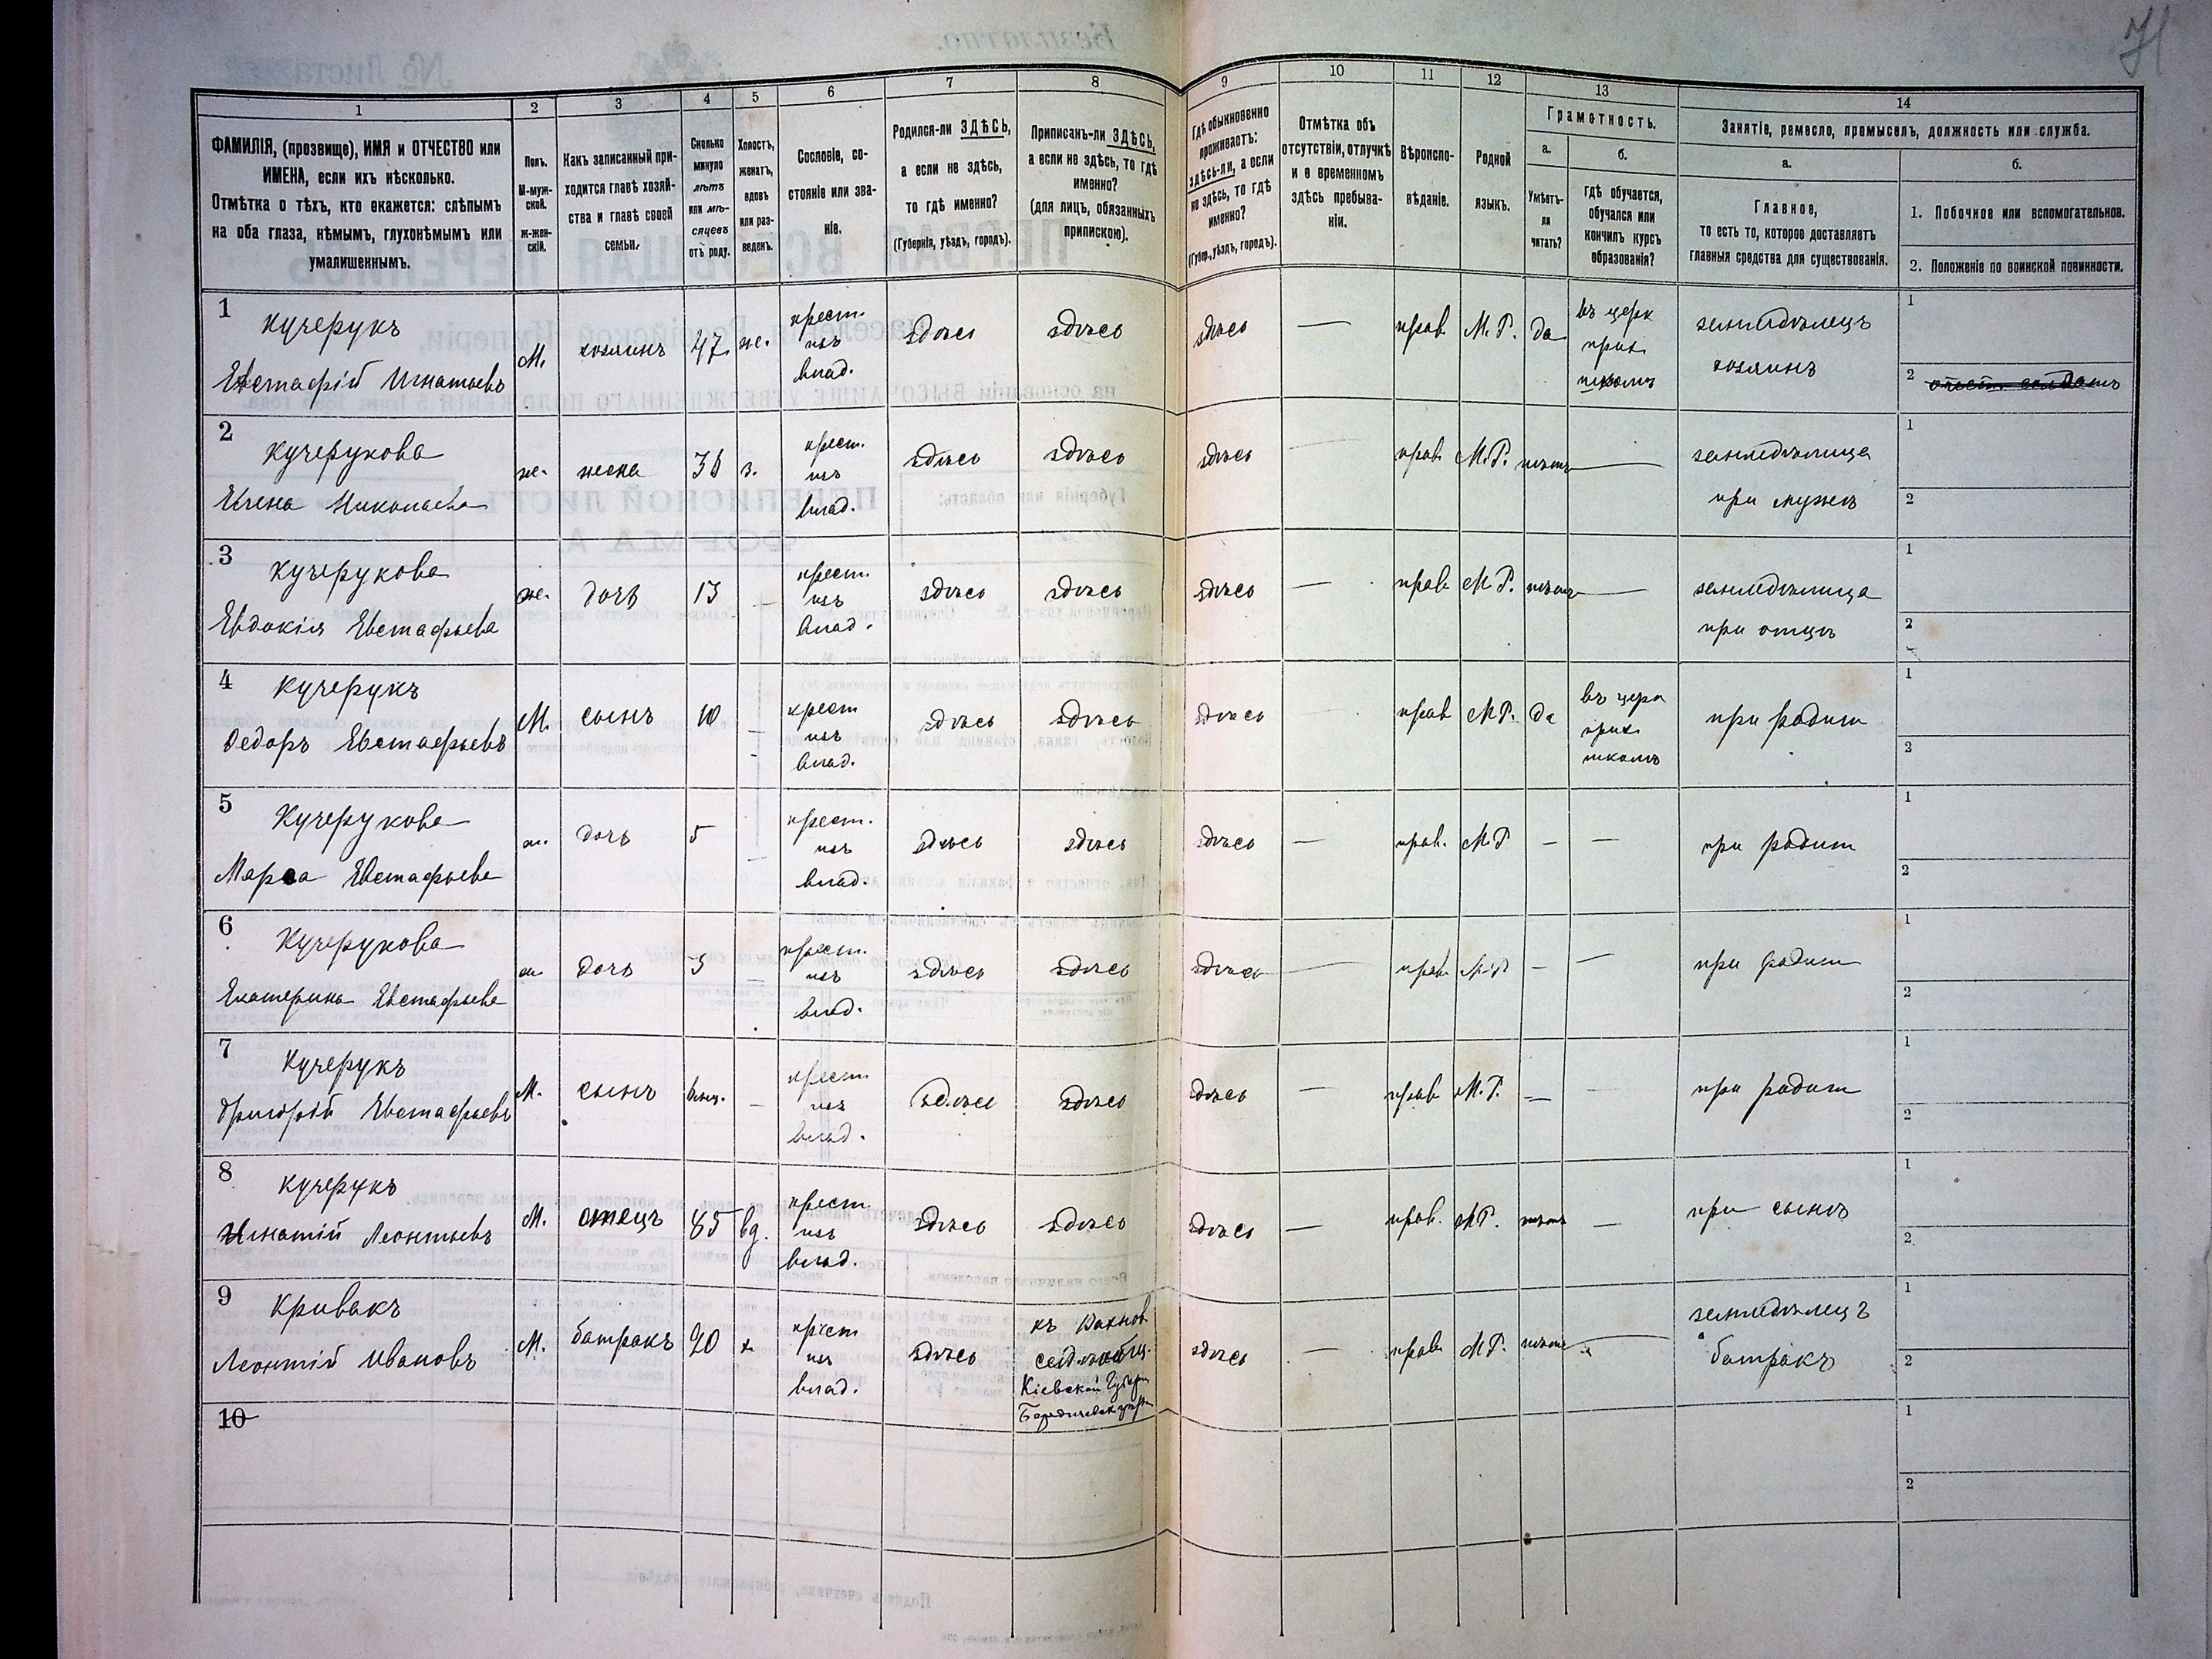 71
1
2
3
4
5
6
7
8
9
10
11
12
13
14
ФАМИЛІЯ, (прозвище), ИМЯ и ОТЧЕСТВО или
ИМЕНА, если ихъ нѣсколько.
Отмѣтка о тѣхъ, кто окажется: слѣпымъ
на оба глаза, нѣмымъ, глухонѣмымъ или
умалишеннымъ.
Полъ.
М-муж-
ской.
ж-жен-
скій.
Какъ записанный при-
ходится главѣ хозяй-
ства и главѣ своей
семьи.
Сколько
минуло
лѣтъ
или мѣ-
сяцевъ
отъ роду.
Холостъ,
женатъ,
вдовъ
или раз-
веденъ.
Сословіе, со-
стояніе или зва-
ніе.
Родился-ли ЗДѢСЬ,
а если не здѣсь,
то гдѣ именно?
(Губернія, уѣздъ, городъ).
Приписанъ-ли ЗДѢСЬ,
а если не здѣсь, то гдѣ
именно?
(для лицъ, обязанныхъ
припискою).
Гдѣ обыкновенно
проживаетъ:
здѣсь-ли, а если
не здѣсь, то гдѣ
именно?
(Губер., уѣздъ, городъ).
Отмѣтка объ
отсутствіи, отлучкѣ
и о временномъ
здѣсь пребыва-
ніи.
Вѣроиспо-
вѣданіе.
Родной
языкъ.
Грамотность.
а.
Умѣетъ-
ли
читать?
б.
гдѣ обучается,
обучался или
кончилъ курсъ
образованія?
Занятіе, ремесло, промыселъ, должность или служба.
а.
Главное,
то есть то, которое доставляетъ
главныя средства для существованія.
б.
1. Побочное или вспомогательное.
2. Положеніе по воинской повинности.
1
Кучерукъ
Евстафій Игнатьевъ
М.
хозяинъ
47
же.
крест.
изъ
влад.
здѣсь
здѣсь
здѣсь
—
прав.
М. Р.
да
въ церк
прих.
школѣ
земледѣлецъ
хозяинъ
1
2
2
Кучерукова
Елена Николаева
же.
жена
з.
крест.
изъ
влад.
здѣсь
здѣсь
здѣсь
—
прав.
М. Р.
нѣтъ
—
земледѣлица
при мужѣ
1
2
3
Кучерукова
Евдокія Евстафьева
же.
дочь
13
—
крест.
изъ
влад.
здѣсь
здѣсь
здѣсь
—
прав
М Р.
нѣтъ
—
земледѣлица
при отцѣ
1
2
4
Кучерукъ
Федоръ Евстафьевъ
М.
сынъ
10
—
крест
изъ
влад.
здѣсь
здѣсь
здѣсь
—
прав
М Р.
да
въ церк
прих.
школѣ
при родит
1
2
5
Кучерукова
Марѳа Евстафьева
ж.
дочь
5
—
крест.
изъ
влад.
здѣсь
здѣсь
здѣсь
—
прав.
М Р
—
—
при родит
1
2
6
Кучерукова
Екатерина Евстафьева
ж.
дочь
3
—
крест.
изъ
влад.
здѣсь
здѣсь
здѣсь
—
прав
М Р
—
—
при родит
1
2
7
Кучерукъ
Григорій Евстафьевъ
М.
сынъ
—
крест
изъ
влад.
здѣсь
здѣсь
здѣсь
—
прав
М. Р.
—
—
при родит
1
2
8
Кучерукъ
Игнатій Леонтьевъ
М.
отецъ
85
вд.
крест
изъ
влад.
здѣсь
здѣсь
здѣсь
—
прав.
М Р.
нѣтъ
—
при сынѣ
1
2
9
Кривакъ
Леонтій Ивановъ
М.
батракъ
20
х.
крест
изъ
влад.
здѣсь
къ Вахнов
Кіевской Губерн
Бердичевск
здѣсь
—
прав
М Р.
нѣтъ
—
земледѣлецъ
батракъ
1
2
10
1
2